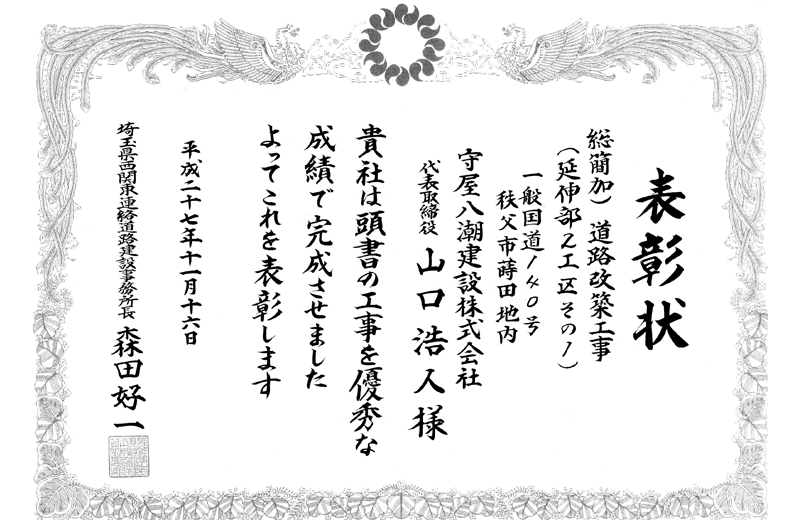 表彰状
総簡加）道路改築工事
（延伸部２工区その１）
一般国道１４０号
秩父市蒔田地内
守屋八潮建設株式会社
代表取締役 山口浩人様
貴社は頭書の工事を優秀な
成績で完成させました
よってこれを表彰します
平成二十七年十一月十六日
埼玉県西関東連絡道路建設事務所長 森田好一